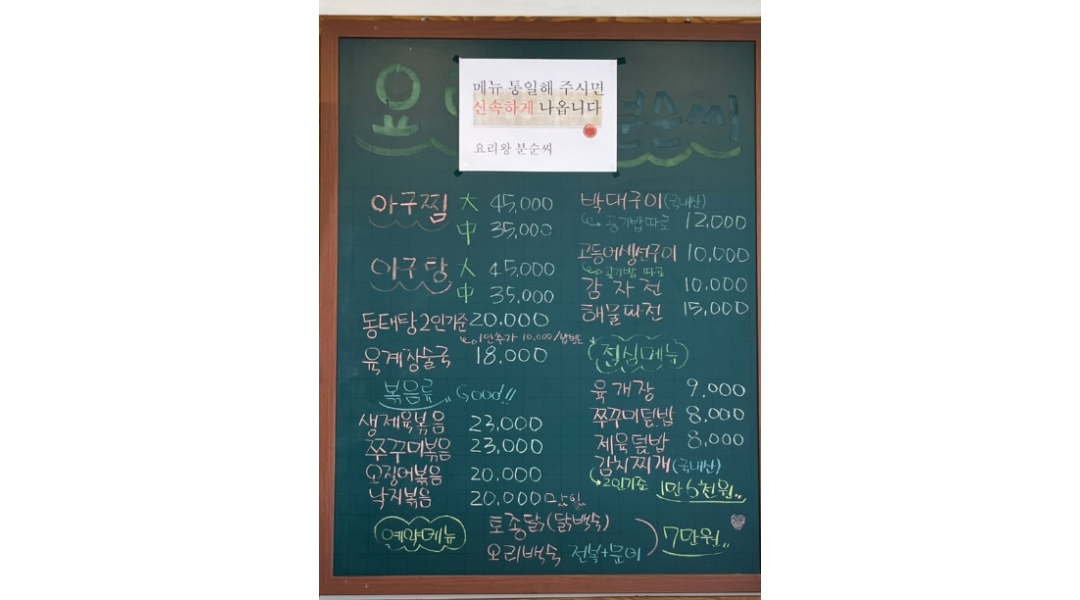 메뉴 통일해 주시면
신속하게 나옵니다
요리왕 분순씨
요 분순씨
아구찜 大 45,000
中 35,000
아구탕 大 45,000
中 35,000
동태탕2인기준 20.000
1인추가 10.000/
육계장술국 18.000
볶음류 Good!!
생제육볶음 23,000
쭈꾸미볶음 23,000
오징어볶음 20.000
낙지볶음 20.000
박대구이(국내산)
공기밥따로 12,000
고등어생선구이 10,000
공기밥 따로
감자전 10.000
해물파전 15,000
점심메뉴
육개장 9,000
쭈꾸미덮밥 8,000
제육덮밥 8,000
김치찌개(국내산)
2인기준 1만5천원
예약메뉴 토종닭(닭백숙)
오리백숙 전복+문어
7만원